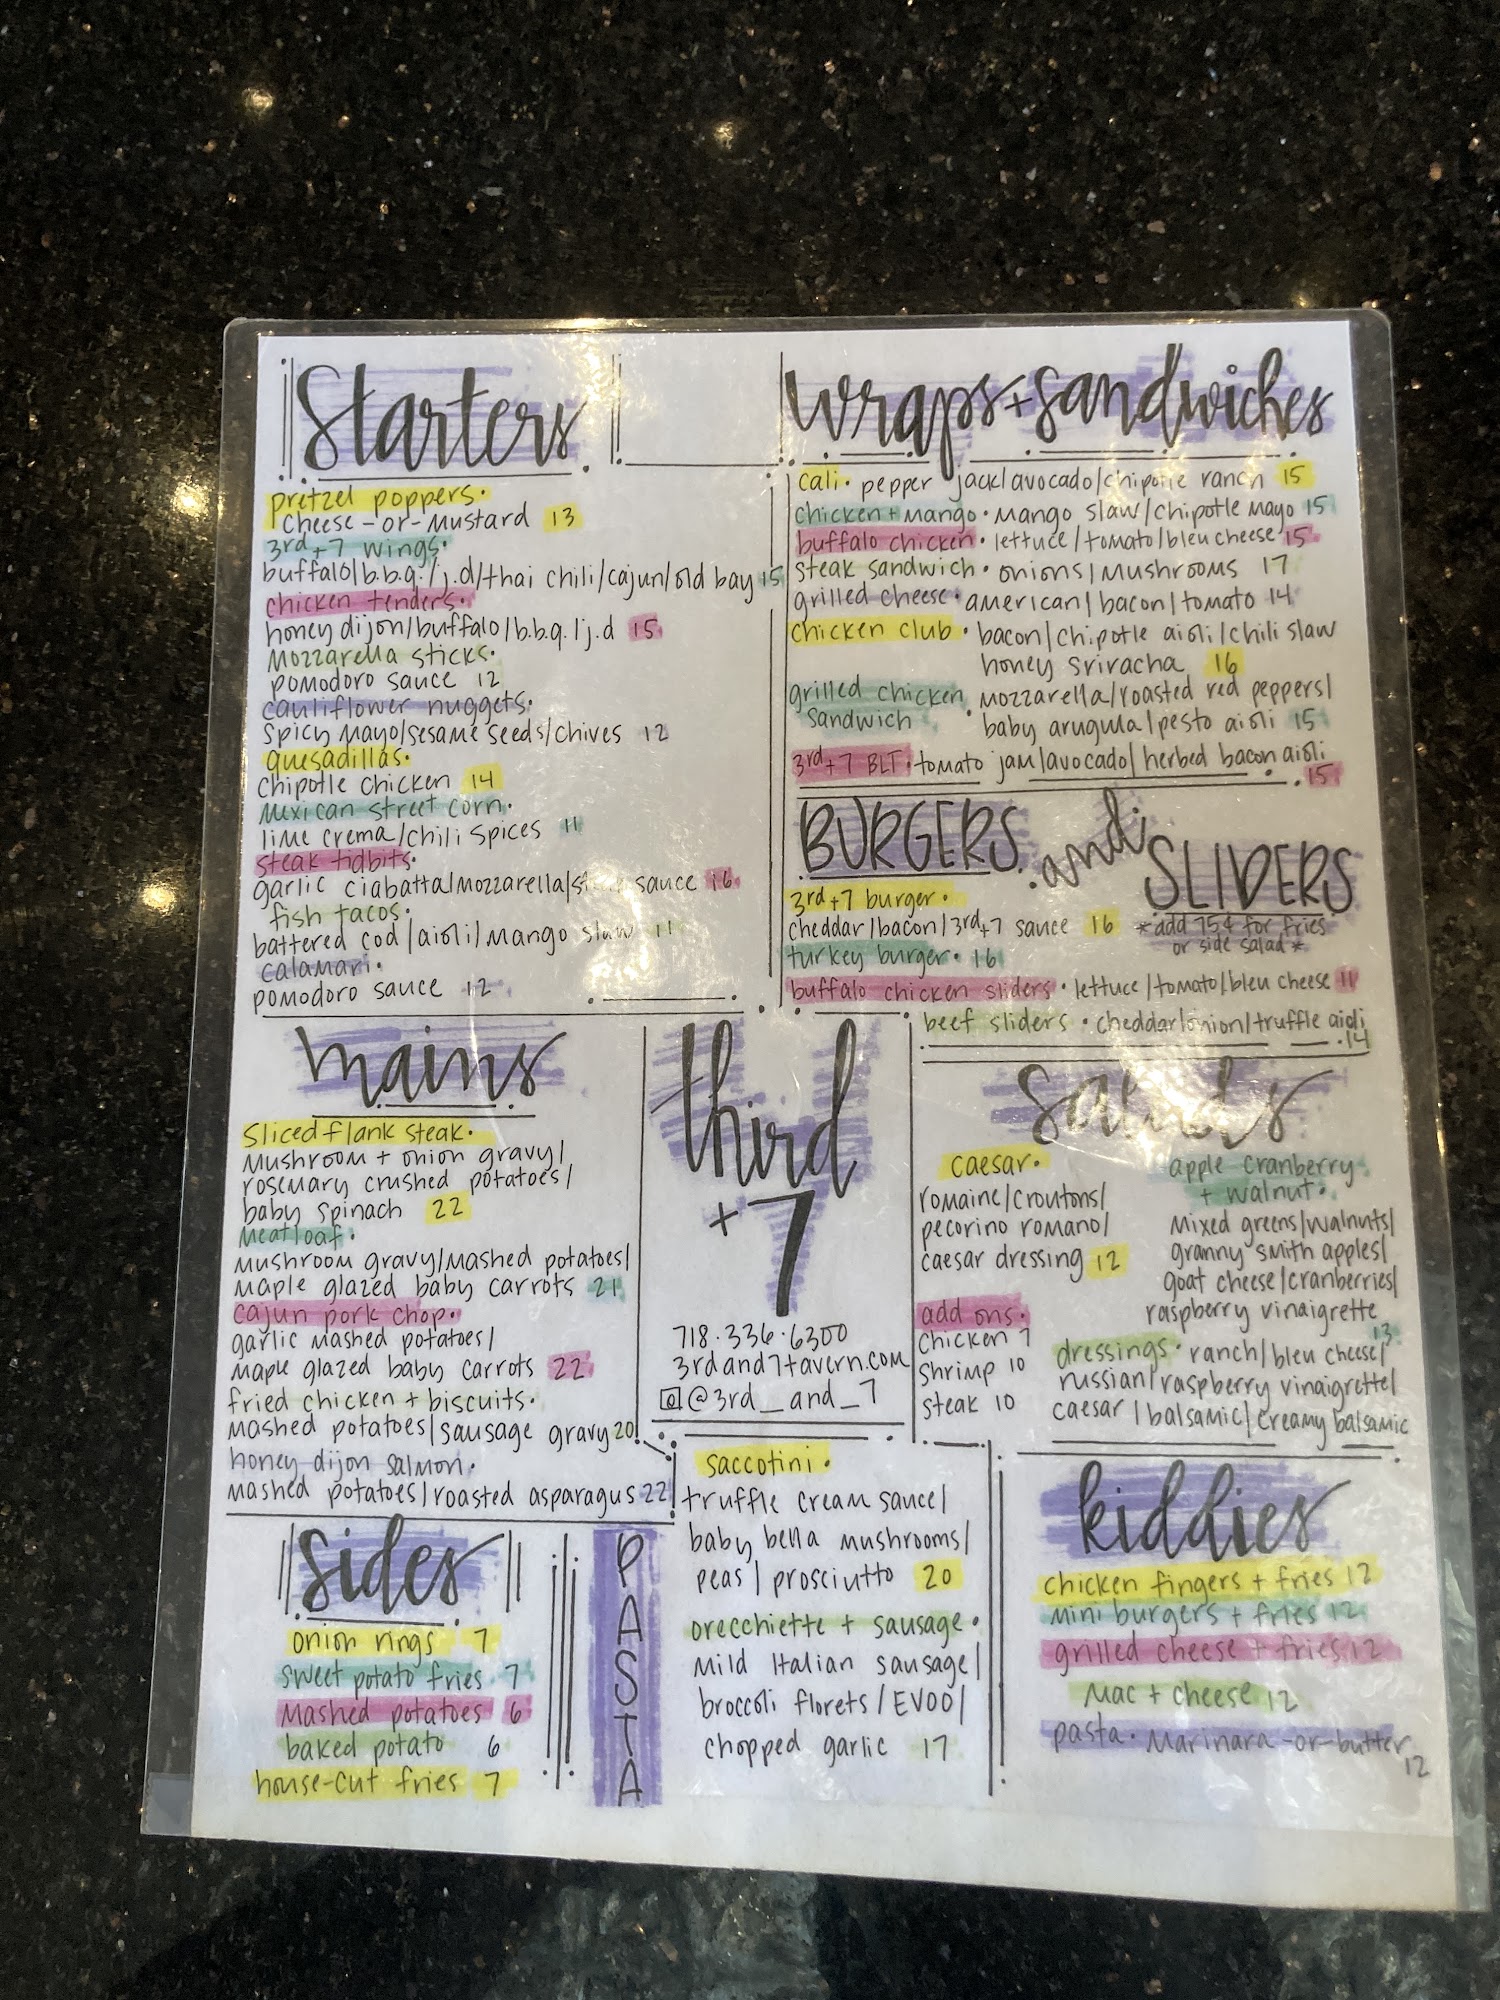 Starters
pretzel poppers.
Cheese-or-Mustard 13
3rd+7 wings.
buffalo/b.b.q./j.d/thai chili/cajun/old bay 15
chicken tenders.
honey dijon/buffalo/b.b.q./j.d 15
Mozzarella sticks.
pomodoro sauce 12
cauliflower nuggets.
Spicy Mayo/sesame seeds/chives 12
quesadillas.
Chipotle Chicken 14
Mexican street corn.
lime crema/chili spices 11
steak tidbits.
garlic ciabatta/mozzarella/ sauce 16
fish tacos.
battered cod/aioli/mango slaw 11
calamari.
pomodoro sauce 12
wraps+sandwiches
cali. pepper jack/avocado/chipotle ranch 15
chicken+mango. Mango slaw/chipotle mayo 15
buffalo chicken. lettuce/tomato/bleu cheese 15
steak sandwich. onions/mushrooms 17
grilled cheese. american/bacon/tomato 14
chicken club. bacon/chipotle aioli/chili slaw
honey sriracha 16
grilled chicken mozzarella/roasted red peppers/
sandwich . baby arugula/pesto aioli 15
3rd+7 BLT. tomato jam/avocado/herbed bacon aioli
15
BURGERS and SLIDERS
3rd+7 burger.
cheddar/bacon/3rd+7 sauce 16
*add 75¢ for fries
or side salad*
turkey burger. 16
buffalo chicken sliders. lettuce/tomato/bleu cheese 11
beef sliders. cheddar/onion/truffle aioli
14
mains
Sliced flank steak.
mushroom + onion gravy/
rosemary crushed potatoes/
baby spinach 22
Meatloaf.
mushroom gravy/mashed potatoes/
maple glazed baby carrots 21
cajun pork chop.
garlic mashed potatoes/
maple glazed baby carrots 22
fried chicken + biscuits.
mashed potatoes/sausage gravy 20
honey dijon salmon.
mashed potatoes/roasted asparagus 22
third
+7
718.336.6300
3rdand7tavern.com
@3rd_and_7
salads
caesar.
romaine/croutons/
pecorino romano/
caesar dressing 12
add ons.
chicken 7
shrimp 10
steak 10
apple cranberry
+ walnut.
Mixed greens/walnuts/
granny smith apples/
goat cheese/cranberries/
raspberry vinaigrette
13
dressings. ranch/bleu cheese/
russian/raspberry vinaigrette/
caesar/balsamic/creamy balsamic
sides
onion rings 7
sweet potato fries 7
Mashed potatoes 6
baked potato 6
house-cut fries 7
PASTA
saccotini.
truffle cream sauce/
baby bella mushrooms/
peas/prosciutto 20
orecchiette + sausage.
Mild Italian sausage/
broccoli florets/EVOO/
chopped garlic 17
kiddies
chicken fingers + fries 12
Mini burgers + fries 12
grilled cheese + fries 12
Mac + cheese 12
pasta. Marinara-or-butter
12